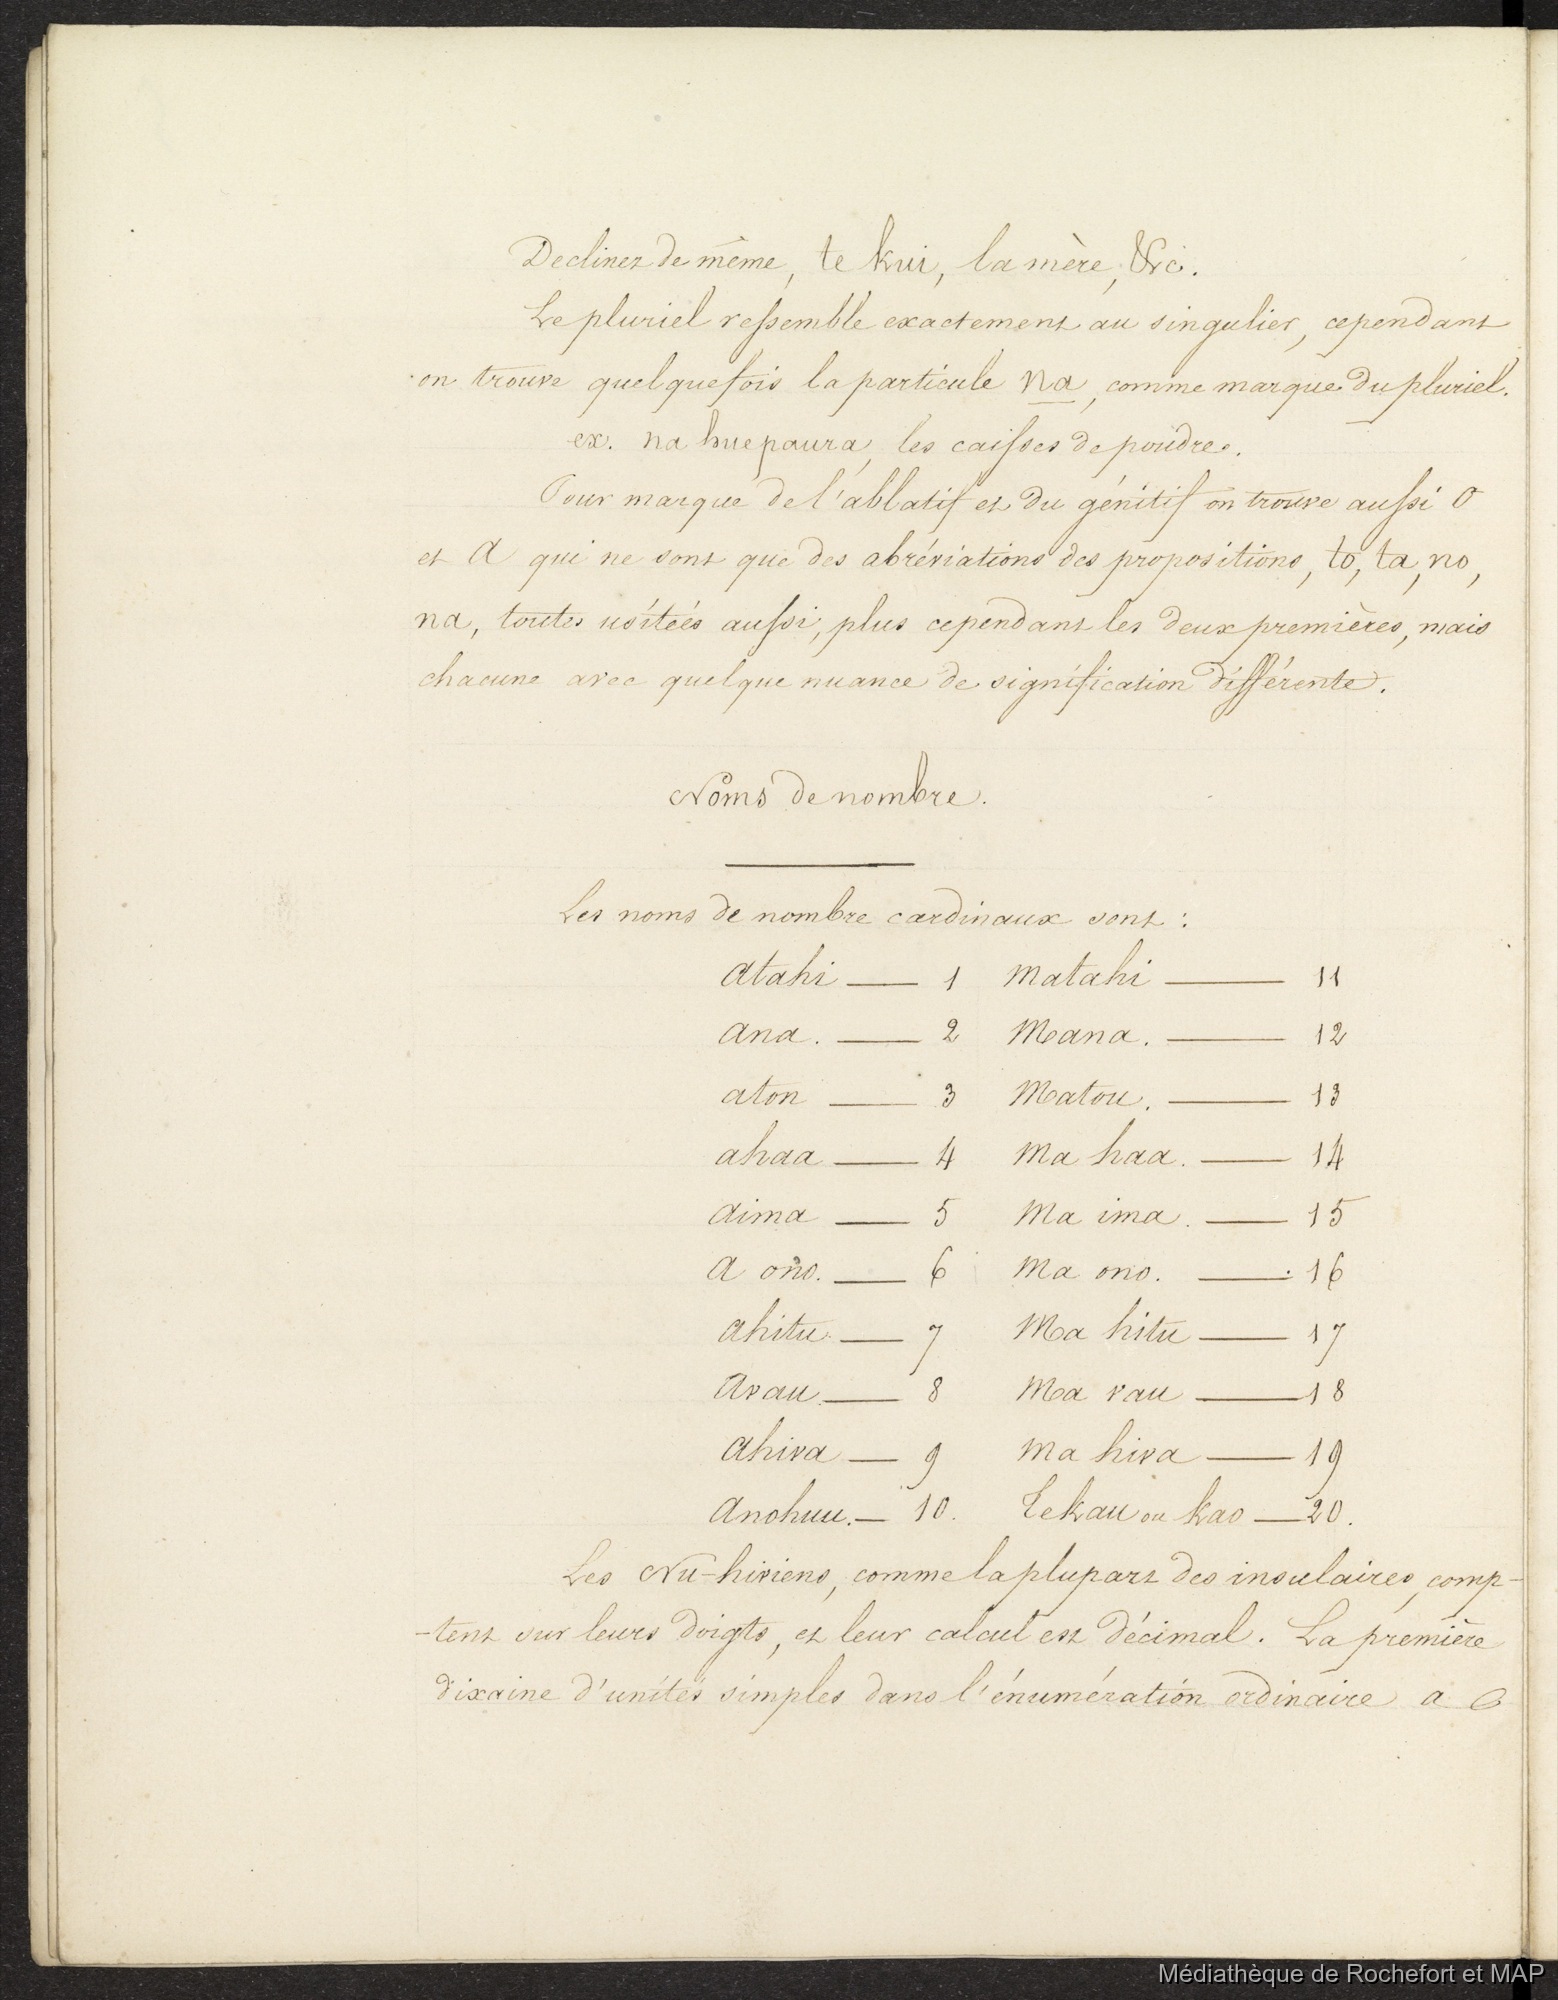 Declinez de même, te kui, la mère, &c.
Le pluriel ressemble exactement au singulier, cependant
on trouve quelquefois la particule na, comme marque du pluriel.
ex. na hue paura, les caisses de poudre.
Pour marque de l'ablatif et du génitif on trouve aussi O
et A qui ne sont que des abréviations des propositions, to, ta, no,
na, toutes usitées aussi, plus cependant les deux premières, mais
chacune avec quelque nuance de signification différente.
Noms de nombre.
Les noms de nombre cardinaux sont :
Atahi — 1 Matahi — 11
Ana. — 2 Mana. — 12
aton — 3 Matou. — 13
ahaa — 4 Ma haa. — 14
Aima — 5 Ma ima. — 15
A ono. — 6 Ma ono. — 16
Ahitu — 7 Ma hitu — 17
Avau — 8 Ma vau — 18
Ahiva — 9 Ma hiva — 19
Anohuu. — 10. Tekau ou kao — 20.
Les Nu-hiviens, comme la plupart des insulaires, comp-
-tent sur leurs doigts, et leur calcul est décimal. La première
dixaine d'unités simples dans l'énumération ordinaire a
Médiathèque de Rochefort et MAP